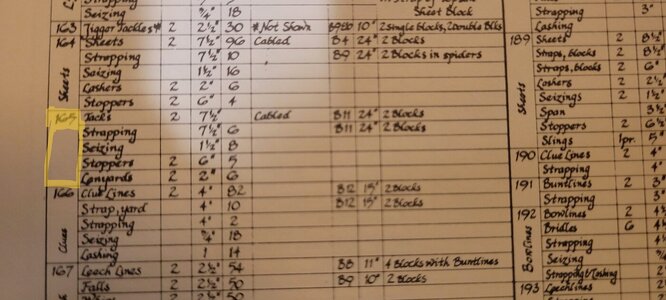 Strapping
Seizing ¾" 18 Sheet Block
163 Jigger Tackles* 2 2½" 30 *Not Shown 10" 2 Single blocks, 2 Double Blks
164 Sheets 2 7½" 96 Cabled B4 24" 2 Blocks
Strapping 7½" 10 B9 24" 2 Blocks in spiders
Seizing 1½" 16
Lashers 2 2" 6
Stoppers 2 6" 4
Sheets
165 Tacks 2 7½" Cabled B11 24" 2 Blocks
Strapping 7½" 6 B11 24" 2 Blocks
Seizing 1½" 8
Stoppers 2 6" 5
Lanyards 2 2" 6
166 Clue Lines 2 4" 82 B12 15" 2 Blocks
Strap, yard 4" 10 B12 15" 2 Blocks
Strapping 4" 2
Seizing ¾" 18
Lashing 1 14
Clues
167 Leech Lines 2 2½" 54 B8 11" 4 Blocks with Buntlines
Falls 2 2½" 50 B9 10" 2 Blocks
2 2½" 50
Strapping 3"
Lashing
189 Sheets 2 8½"
Straps, blocks 2 8½"
Straps, blocks 2 6"
Lashers 2 2½"
Seizings 2 1½"
Span 3½"
Stoppers 2 6½"
Slings 1pr. 5"
Sheets
190 Clue Lines 2 4"
Strapping 4"
191 Buntlines 2 3"
Strapping 3"
192 Bowlines 2
Bridles 6
Strapping
Seizing
Strapping & lashing 2
Bowlines
193 Leechlines 2
Strapping